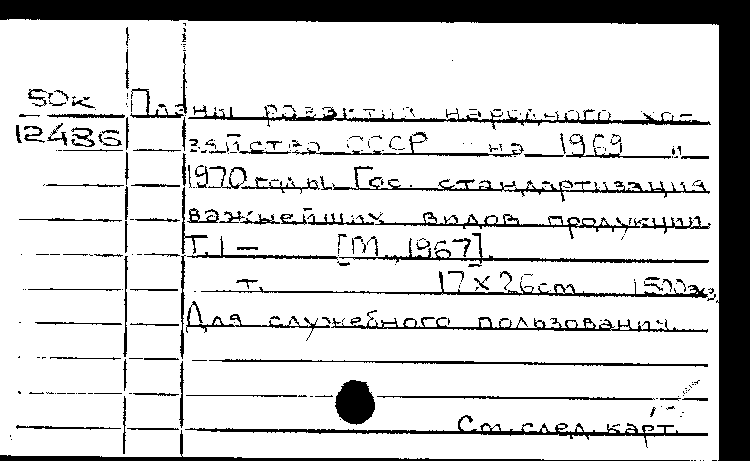 50к Планы развития народного хо-
12486 зяйства СССР на 1969 и
1970 годы. Гос. стандартизация
важнейших видов продукции.
Т.1 — [М., 1967].
т. 17 × 26 cm 1500 экз.
Для служебного пользования.
См. след. карт.